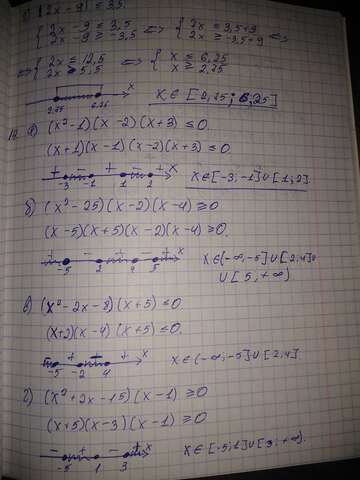 |2x - 9| ≤ 3,5
{ 2x - 9 ≤ 3,5 <=> { 2x ≤ 3,5+9 <=>
{ 2x - 9 ≥ -3,5 { 2x ≥ -3,5+9
<=> { 2x ≤ 12,5 <=> { x ≤ 6,25
{ 2x ≥ 5,5 { x ≥ 2,75
2.75 6.25 x x ∈ [2,75; 6,25]
10. а) (x²-1)(x-2)(x+3) ≤ 0
(x+1)(x-1)(x-2)(x+3) ≤ 0.
+ - + - + x
-3 -1 1 2 x ∈ [-3,-1] ∪ [1;2].
б) (x²-25)(x-2)(x-4) ≥ 0
(x-5)(x+5)(x-2)(x-4) ≥ 0.
-5 2 4 5 x x ∈ (-∞,-5] ∪ [2,4] ∪
∪ [5, +∞)
в) (x²-2x-8)(x+5) ≤ 0
(x+2)(x-4)(x+5) ≤ 0.
-5 -2 4 x x ∈ (-∞,-5] ∪ [2,4]
г) (x²+2x-15)(x-1) ≥ 0
(x+5)(x-3)(x-1) ≥ 0
-5 1 3 x x ∈ [-5,1] ∪ [3; +∞).